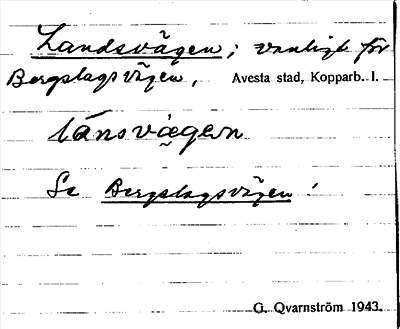 Landsvägen; vanligt för
Bergslagsvägen, Avesta stad, Kopparb. l.
länsvägen
Se Bergslagsvägen!
G. Qvarnström 1943.